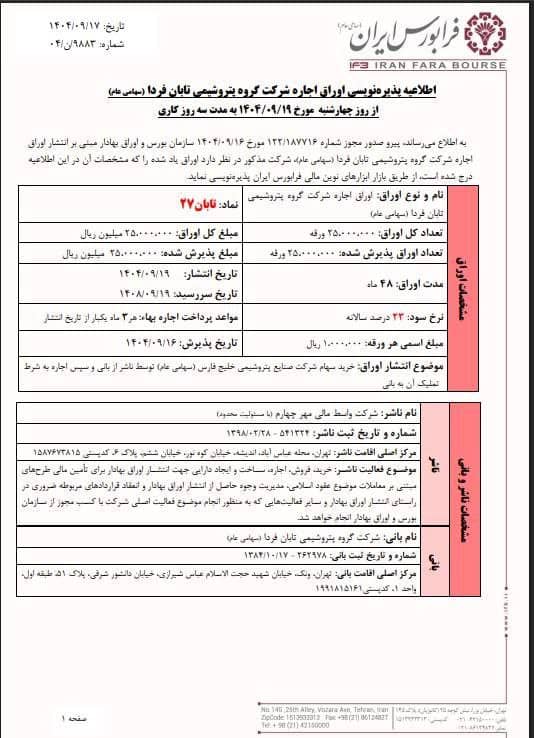 تاریخ: ۱۴۰۴/۰۹/۱۷
شماره: ۹۸۸۳/ن/۰۴
فرابورس ایران (سهامی عام)
IFB IRAN FARA BOURSE
اطلاعیه پذیره‌نویسی اوراق اجاره شرکت گروه پتروشیمی تابان فردا (سهامی عام)
از روز چهارشنبه مورخ ۱۴۰۴/۰۹/۱۹ به مدت سه روز کاری
به اطلاع می‌رساند، پیرو صدور مجوز شماره ۱۲۲/۱۸۷۷۱۶ مورخ ۱۴۰۴/۰۹/۱۶ سازمان بورس و اوراق بهادار مبنی بر انتشار اوراق
اجاره شرکت گروه پتروشیمی تابان فردا (سهامی عام)، شرکت مذکور در نظر دارد اوراق یاد شده را که مشخصات آن در این اطلاعیه
درج شده است، از طریق بازار ابزارهای نوین مالی فرابورس ایران پذیره‌نویسی نماید.
مشخصات اوراق
نام و نوع اوراق: اوراق اجاره شرکت گروه پتروشیمی
تابان فردا (سهامی عام)
نماد: تابان۲۷
تعداد کل اوراق: ۲۵.۰۰۰.۰۰۰ ورقه
مبلغ کل اوراق: ۲۵.۰۰۰.۰۰۰ میلیون ریال
تعداد اوراق پذیرش شده: ۲۵.۰۰۰.۰۰۰ ورقه
مبلغ پذیرش شده: ۲۵.۰۰۰.۰۰۰ میلیون ریال
مدت اوراق: ۴۸ ماه
تاریخ انتشار: ۱۴۰۴/۰۹/۱۹
تاریخ سررسید: ۱۴۰۸/۰۹/۱۹
نرخ سود: ۲۳ درصد سالانه
مواعد پرداخت اجاره بهاء: هر ۳ ماه یکبار از تاریخ انتشار
مبلغ اسمی هر ورقه: ۱.۰۰۰.۰۰۰ ریال
تاریخ پذیرش: ۱۴۰۴/۰۹/۱۶
موضوع انتشار اوراق: خرید سهام شرکت صنایع پتروشیمی خلیج فارس (سهامی عام) توسط ناشر از بانی و سپس اجاره به شرط
تملیک آن به بانی
مشخصات ناشر و بانی
ناشر
نام ناشر: شرکت واسط مالی مهر چهارم (با مسئولیت محدود)
شماره و تاریخ ثبت ناشر: ۵۴۱۳۲۴ - ۱۳۹۸/۰۲/۲۸
مرکز اصلی اقامت ناشر: تهران، محله عباس آباد، اندیشه، خیابان کوه نور، خیابان ششم، پلاک ۶، کدپستی ۱۵۸۷۶۷۳۸۱۵
موضوع فعالیت ناشر: خرید، فروش، اجاره، ساخت و ایجاد دارایی جهت انتشار اوراق بهادار برای تأمین مالی طرح‌های
مبتنی بر معاملات موضوع عقود اسلامی، مدیریت وجوه حاصل از انتشار اوراق بهادار و انعقاد قراردادهای مربوطه ضروری در
راستای انتشار اوراق بهادار و سایر فعالیت‌هایی که به منظور انجام موضوع فعالیت اصلی شرکت با کسب مجوز از سازمان
بورس و اوراق بهادار انجام خواهد شد.
بانی
نام بانی: شرکت گروه پتروشیمی تابان فردا (سهامی عام)
شماره و تاریخ ثبت بانی: ۲۶۲۹۷۸ - ۱۳۸۴/۱۰/۱۷
مرکز اصلی اقامت بانی: تهران، ونک، خیابان شهید حجت الاسلام عباس شیرازی، خیابان دانشور شرقی، پلاک ۵۱، طبقه اول،
واحد ۱، کدپستی۱۹۹۱۸۱۵۱۶۱
No.145 ,25th Alley, Vozara Ave, Tehran, Iran
ZipCode:1513933313 Fax:+98 (21) 86124827
Tel: + 98 (21) 42150000
صفحه ۱